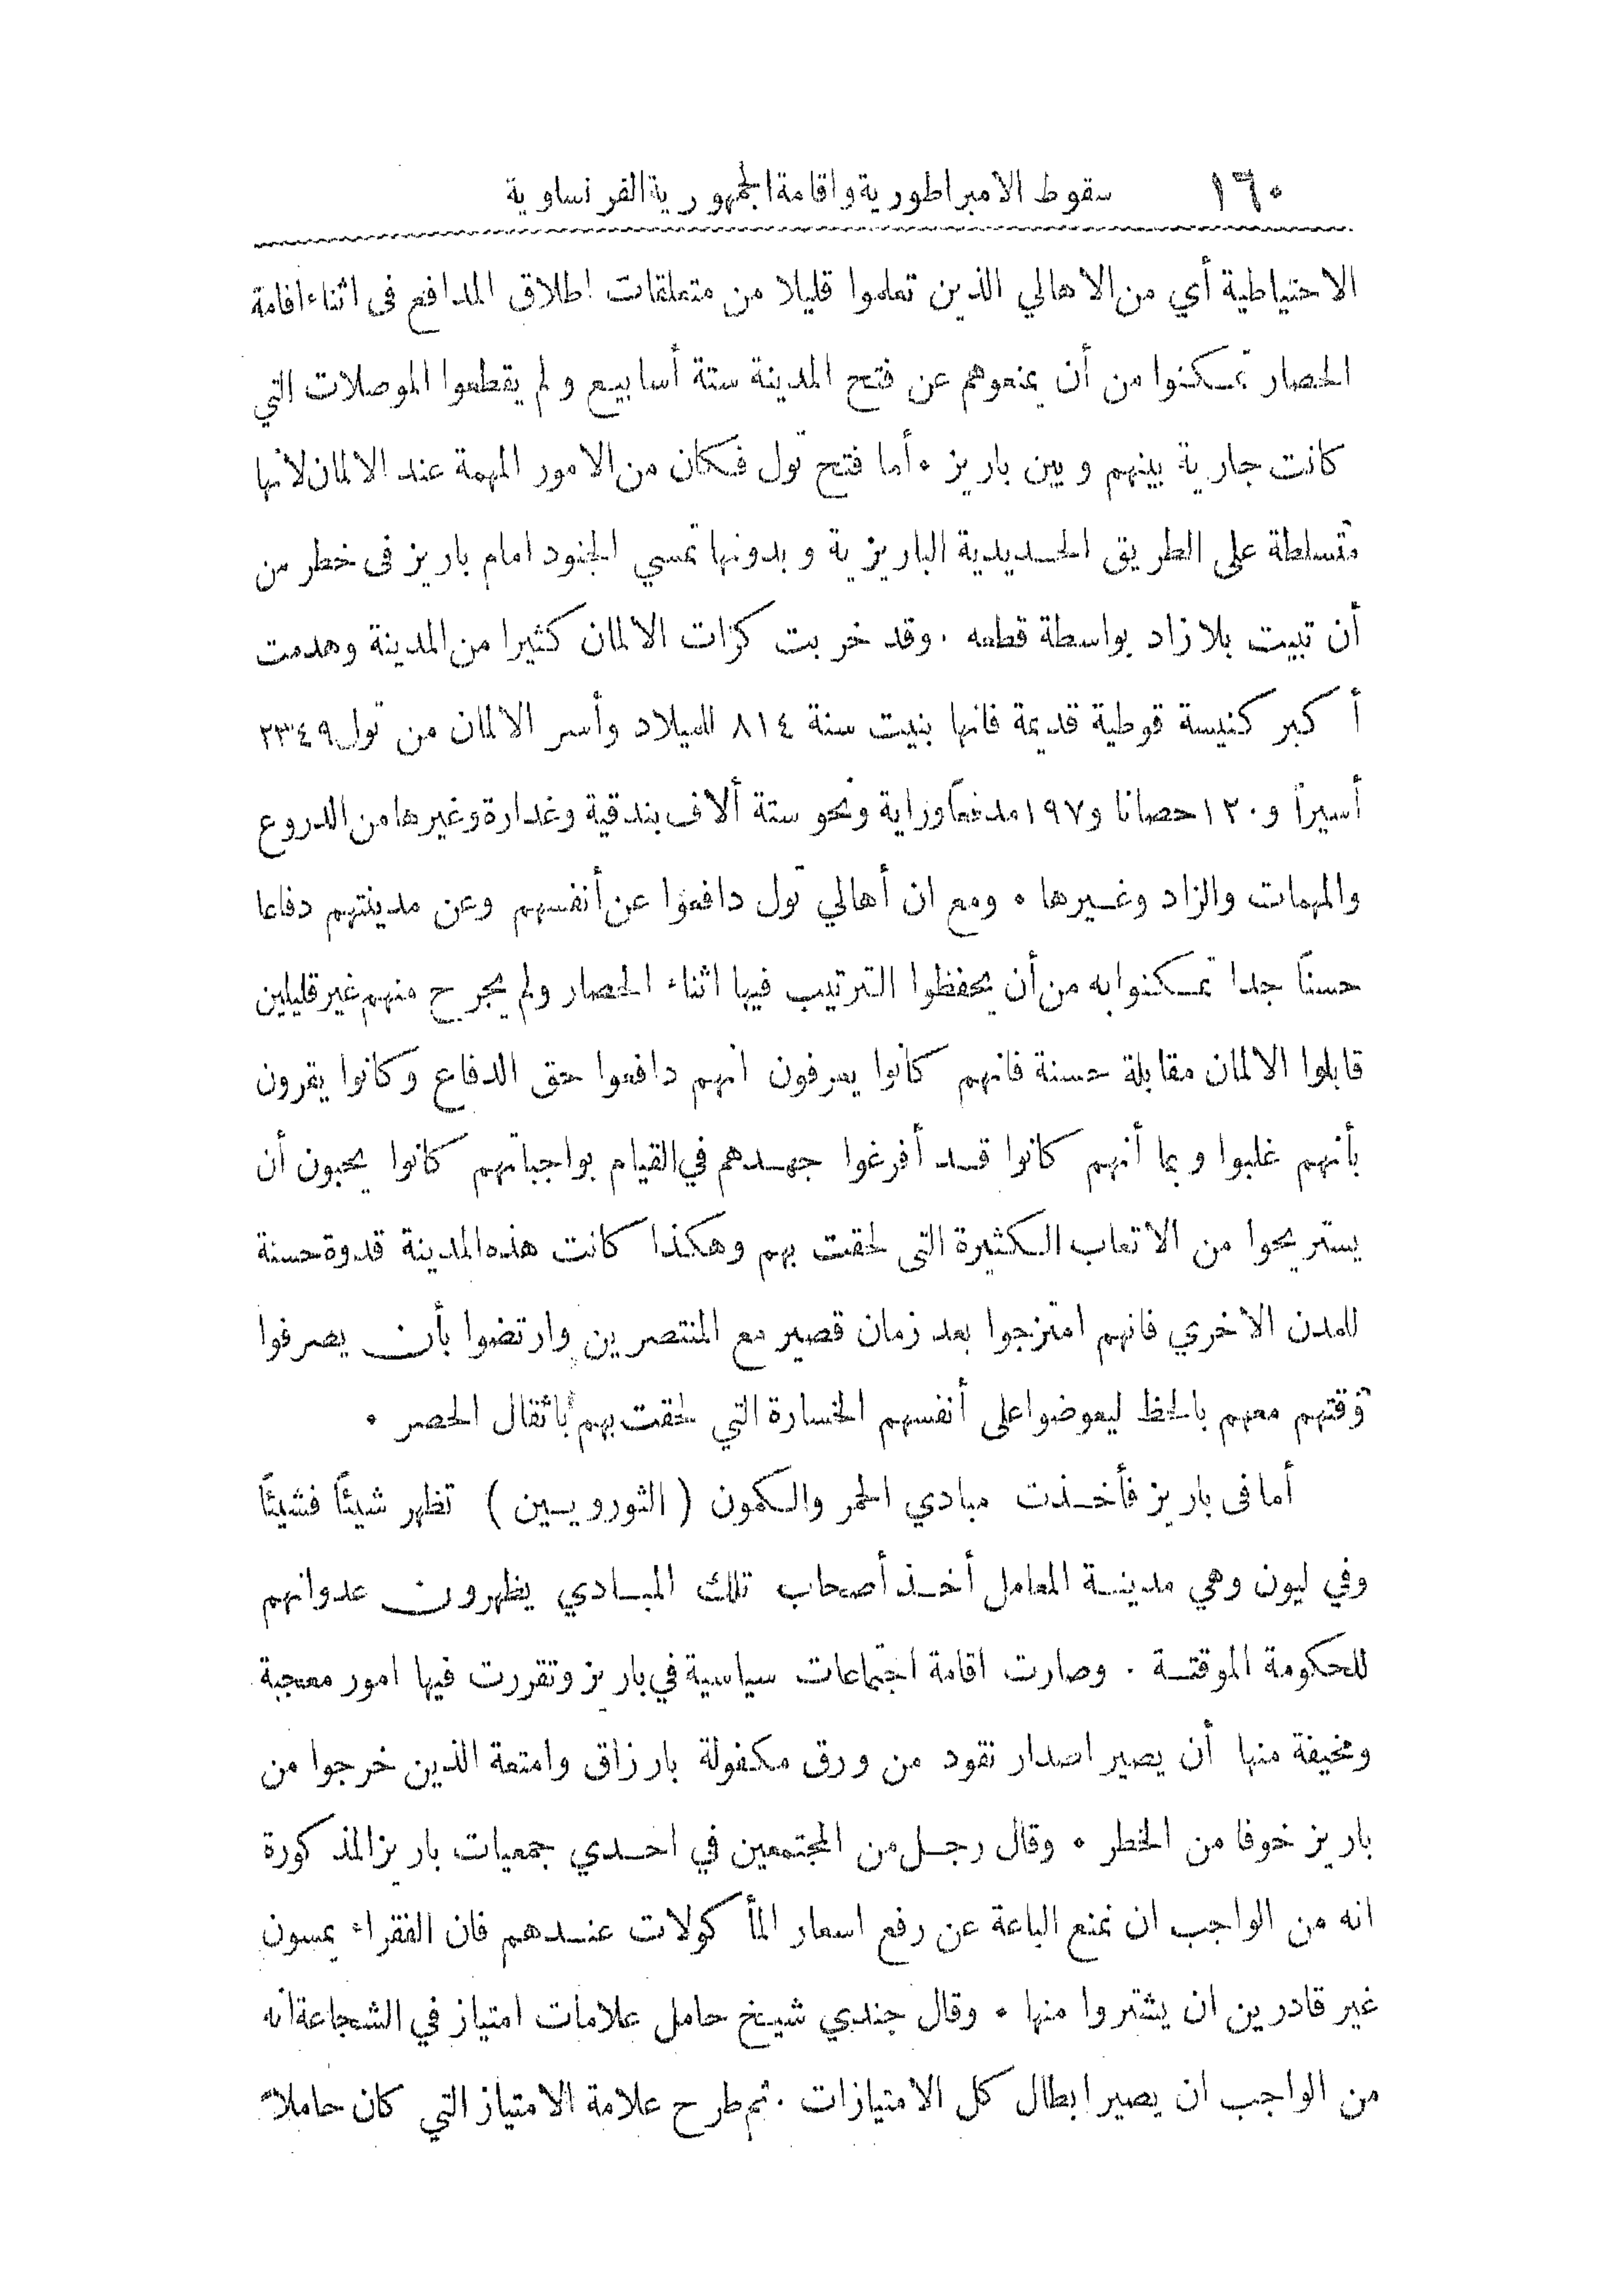 ١٦٠ سقوط الامبراطورية واقامة الجمهورية الفرنساوية
الاحتياطية أي من الاهالي الذين تعلموا قليلا من متعلقات اطلاق المدافع فى اثناء اقامة
الحصار تمكنوا من أن يمنعوهم عن فتح المدينة ستة أسابيع ولم يقطعوا الموصلات التي
كانت جارية بينهم وبين باريز . أما فتح تول فكان من الامور المهمة عند الالمان لانها
متسلطة على الطريق الحديدية الباريزية وبدونها تمسي الجنود امام باريز فى خطر من
أن تبيت بلا زاد بواسطة قطعه . وقد خربت كرات الالمان كثيرا من المدينة وهدمت
أكبر كنيسة قوطية قديمة فانها بنيت سنة ٨١٤ للميلاد وأسر الالمان من تول ٢٣٤٩
أسيراً و١٢٠ حصانا و١٩٧ مدفعاً وراية ونحو ستة ألاف بندقية وغدارة وغيرها من الدروع
والمهمات والزاد وغيرها . ومع ان أهالي تول دافعوا عن أنفسهم وعن مدينتهم دفاعا
حسناً جدا تمكنوا به من أن يحفظوا الترتيب فيها اثناء الحصار ولم يجرح منهم غير قليلين
قابلوا الالمان مقابلة حسنة فانهم كانوا يعرفون انهم دافعوا حق الدفاع وكانوا يقرون
بأنهم غلبوا وبما أنهم كانوا قد أفرغوا جهدهم في القيام بواجباتهم كانوا يحبون أن
يستريحوا من الاتعاب الكثيرة التى لحقت بهم وهكذا كانت هذه المدينة قدوة حسنة
للمدن الاخري فانهم امتزجوا بعد زمان قصير مع المنتصرين وارتضوا بأن يصرفوا
وقتهم معهم بالحظ ليعوضوا على أنفسهم الخسارة التي لحقت بهم بأثقال الحصر .
أما فى باريز فأخذت مبادي الحمر والكمون ( الثورويين ) تظهر شيئاً فشيئاً
وفي ليون وهي مدينة المعامل أخذ أصحاب تلك المبادي يظهرون عدوانهم
للحكومة الموقتة . وصارت اقامة اجتماعات سياسية في باريز وتقررت فيها امور معجبة
ومخيفة منها أن يصير اصدار نقود من ورق مكفولة بارزاق وامتعة الذين خرجوا من
باريز خوفا من الخطر . وقال رجل من المجتمعين في احدي جمعيات باريز المذكورة
انه من الواجب ان نمنع الباعة عن رفع اسعار المأكولات عندهم فان الفقراء يمسون
غير قادرين ان يشتروا منها . وقال جندي شيخ حامل علامات امتياز في الشجاعة انه
من الواجب ان يصير ابطال كل الامتيازات . ثم طرح علامة الامتياز التي كان حاملاً